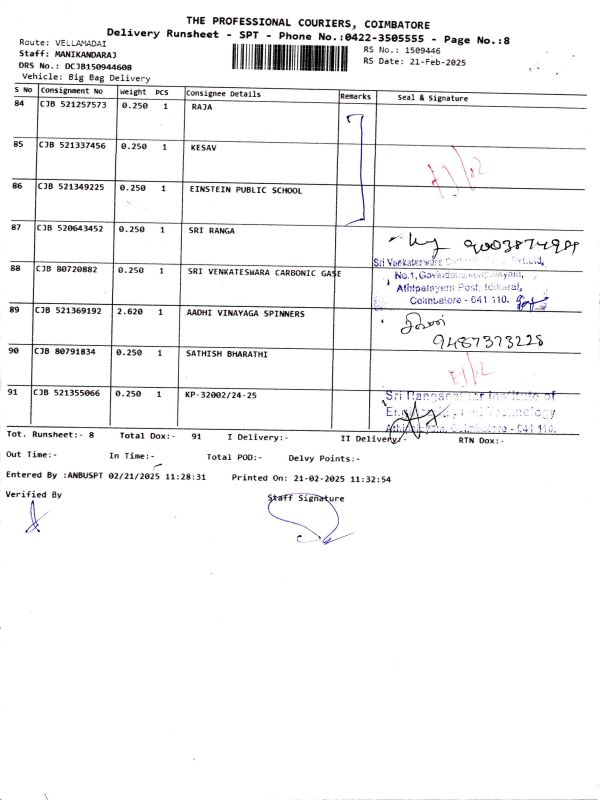 THE PROFESSIONAL COURIERS, COIMBATORE
Delivery Runsheet - SPT - Phone No.:0422-3505555 - Page No.:8
Route: VELLAMADAI
RS No.: 1509446
Staff: MANIKANDARAJ
RS Date: 21-Feb-2025
DRS No.: DCJB150944608
Vehicle: Big Bag Delivery
S No Consignment No Weight PCS Consignee Details Remarks Seal & Signature
84 CJB 521257573 0.250 1 RAJA
85 CJB 521337456 0.250 1 KESAV
86 CJB 521349225 0.250 1 EINSTEIN PUBLIC SCHOOL
87 CJB 520643452 0.250 1 SRI RANGA
Sri Venkateswara
88 CJB 80720882 0.250 1 SRI VENKATESWARA CARBONIC GASE
Athipalayam Post,
Coimbatore - 641 110.
89 CJB 521369192 2.620 1 AADHI VINAYAGA SPINNERS
9487373228
90 CJB 80791834 0.250 1 SATHISH BHARATHI
91 CJB 521355066 0.250 1 KP-32002/24-25
Institute of
Technology
Coimbatore - 641 110.
Tot. Runsheet:- 8 Total Dox:- 91 I Delivery:- II Delivery:- RTN Dox:-
Out Time:- In Time:- Total POD:- Delvy Points:-
Entered By :ANBUSPT 02/21/2025 11:28:31 Printed On: 21-02-2025 11:32:54
Verified By Staff Signature